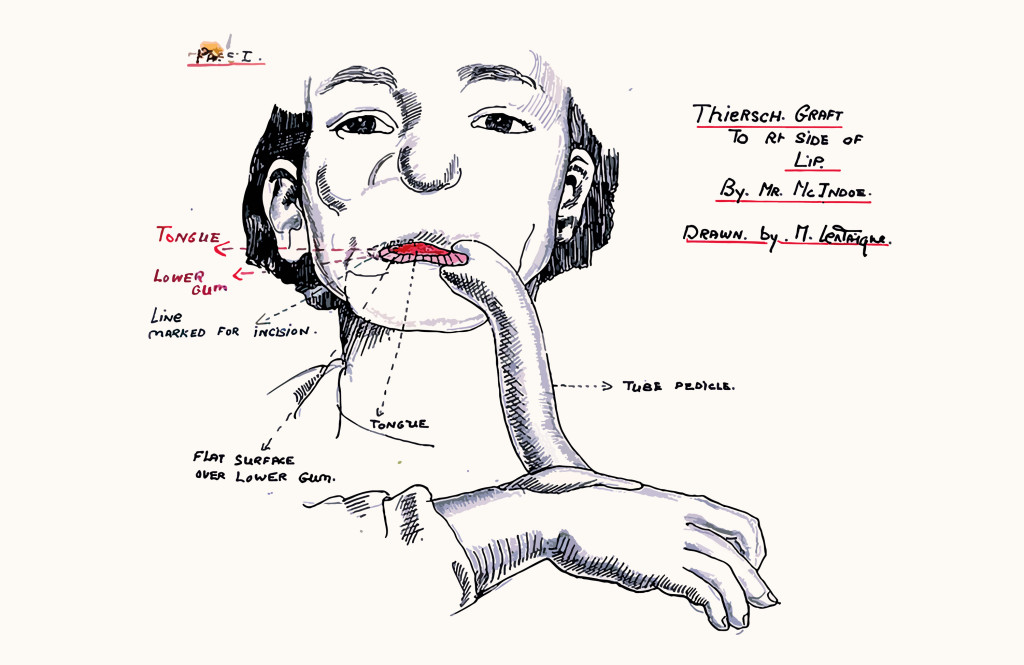 I.
THIERSCH. GRAFT
TO Rt SIDE OF
LIP.
By. MR. MCINDOE.
DRAWN. by. M. Lentaigne.
TONGUE
LOWER
GUM
LINE
MARKED FOR INCISION.
TUBE PEDICLE.
TONGUE
FLAT SURFACE
OVER LOWER GUM.